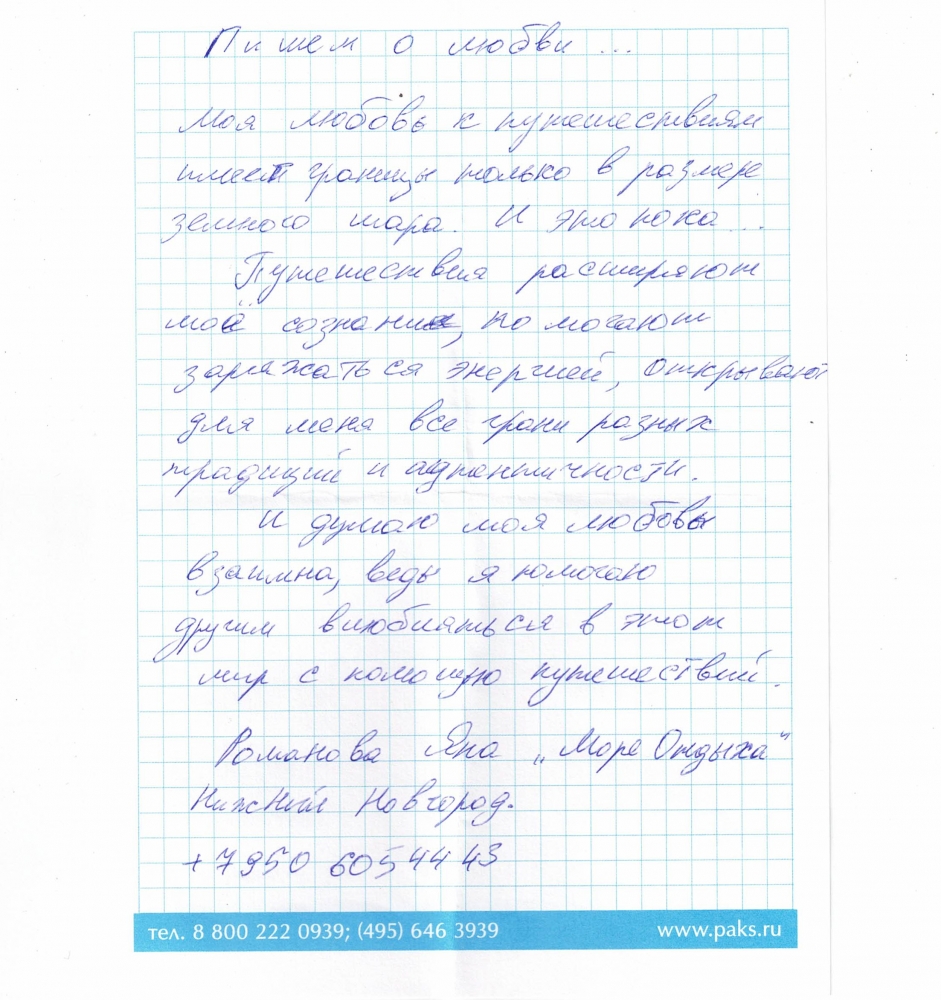 Пишем о любви ...
Моя любовь к путешествиям
имеет границы только в размере
земного шара. И это пока ...
Путешествия расширяют
моё сознание, помогают
заряжаться энергией, открывают
для меня все грани разных
традиций и аутентичности.
И думаю моя любовь
взаимна, ведь я помогаю
другим влюбляться в этот
мир с помощью путешествий.
Романова Яна „Море Отдыха"
Нижний Новгород.
+7950 605 44 43
тел. 8 800 222 0939; (495) 646 3939 www.paks.ru